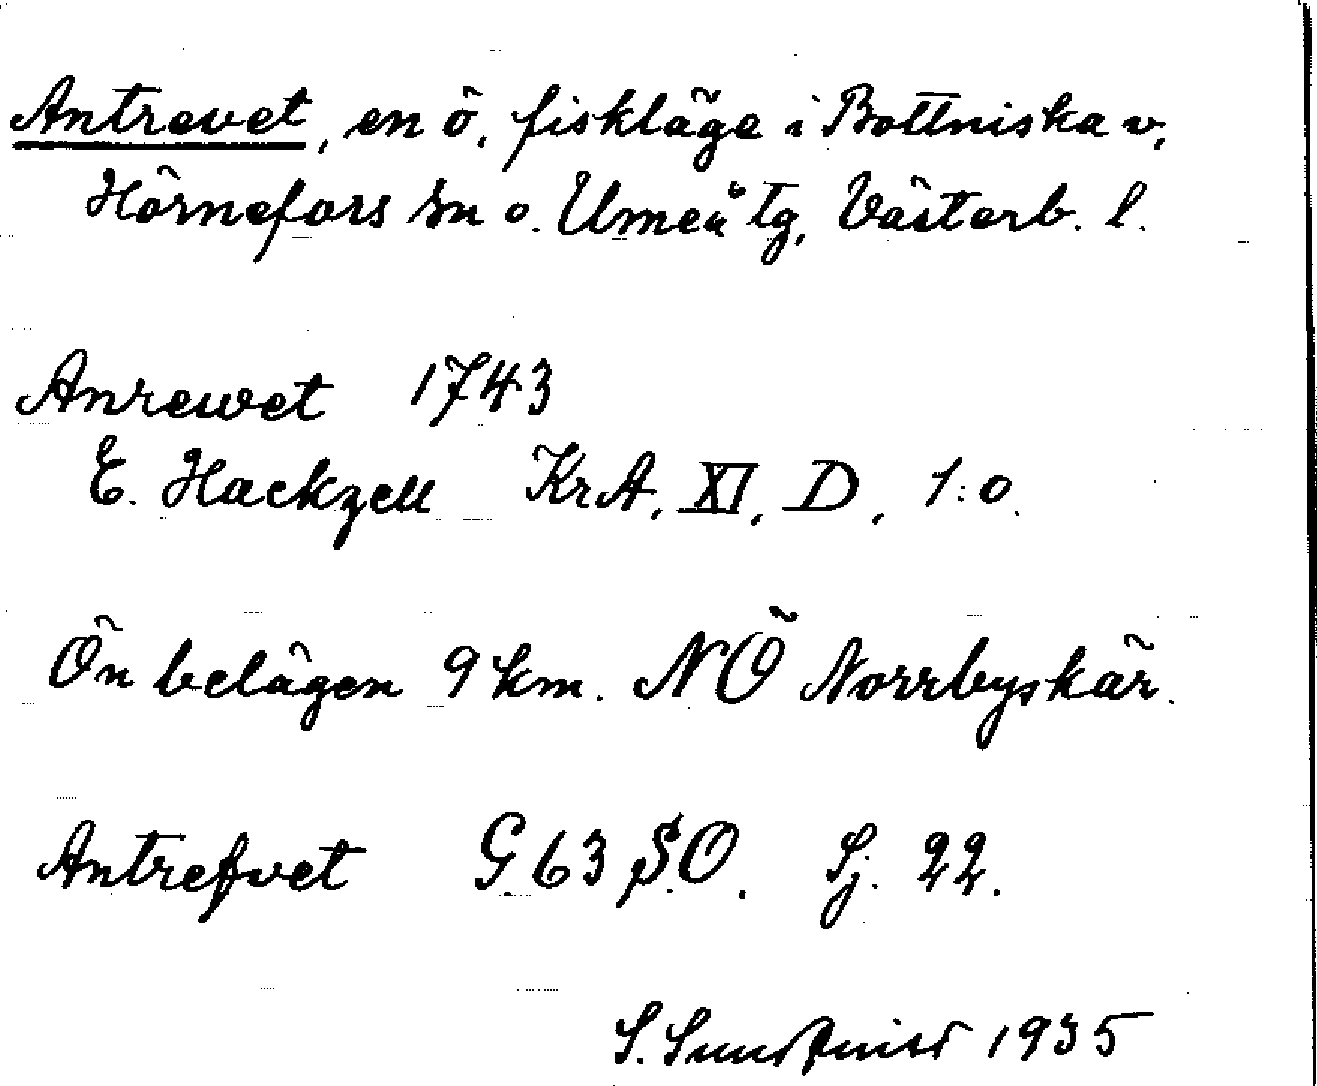 Antrevet, en ö, fiskläge i Bottniska v,
Hörnefors sn o. Umeå tg, Västerb. l.
Anrewet 1743
E. Hackzell KrA, XI, D, 1:o.
Ön belägen 9 km. NÖ Norrbyskär.
Antrefvet G 63 SO. Sj. 22.
S. Sundqvist 1935